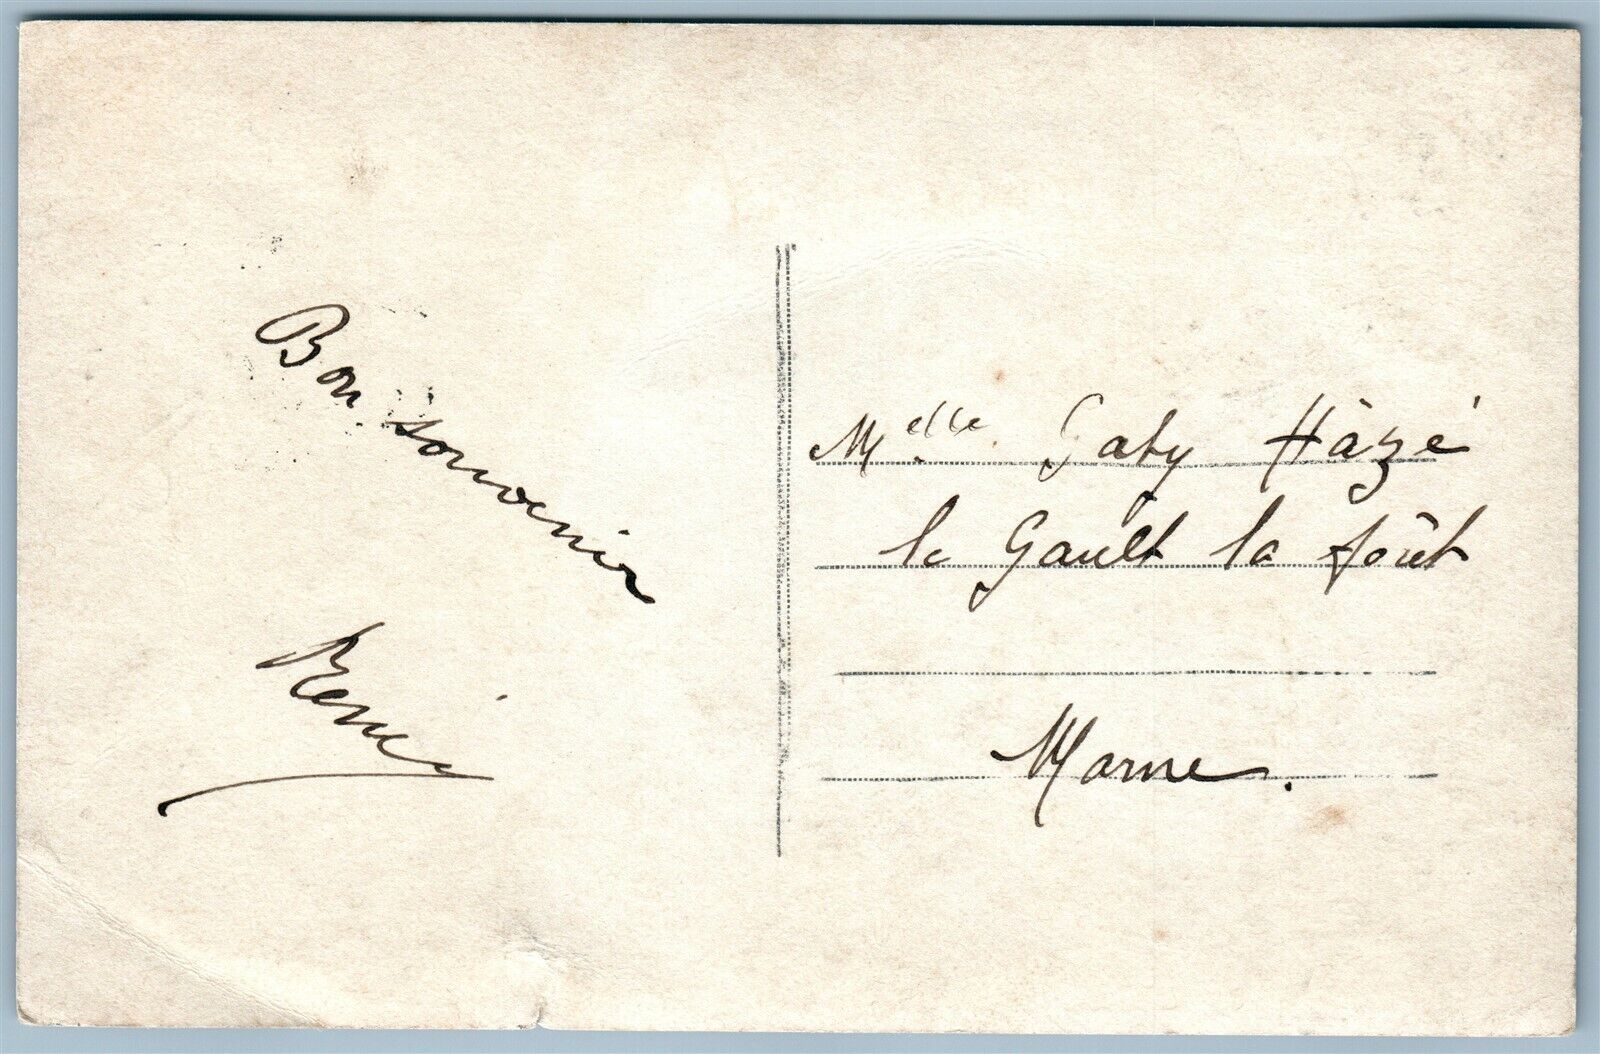 Bon souvenir
René
Melle. Gaby Hàzé
le Gault la forêt
Marne.